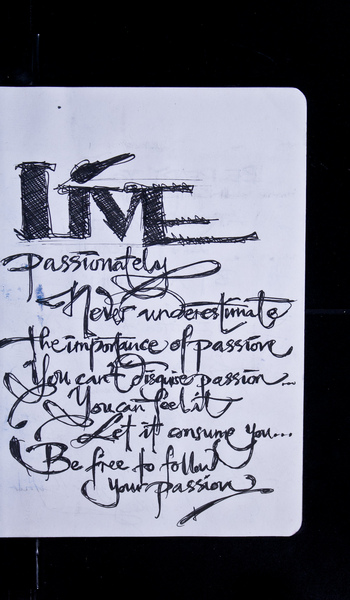 LIVE
passionately
Never underestimate
the importance of passion
You can't disguise passion...
You can feel it
Let it consume you...
Be free to follow
your passion